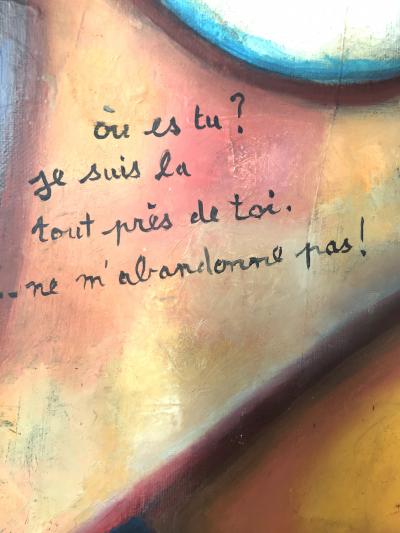 où es tu?
je suis la
tout près de toi.
..ne m'abandonne pas!